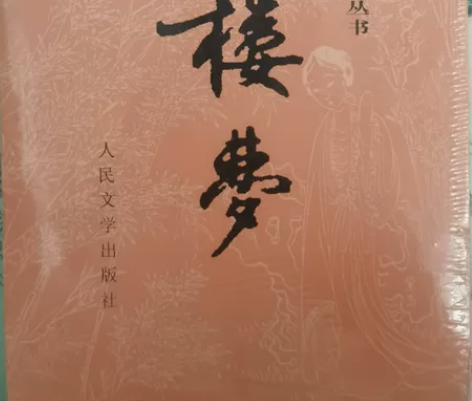 丛书
楼梦
人民文学出版社